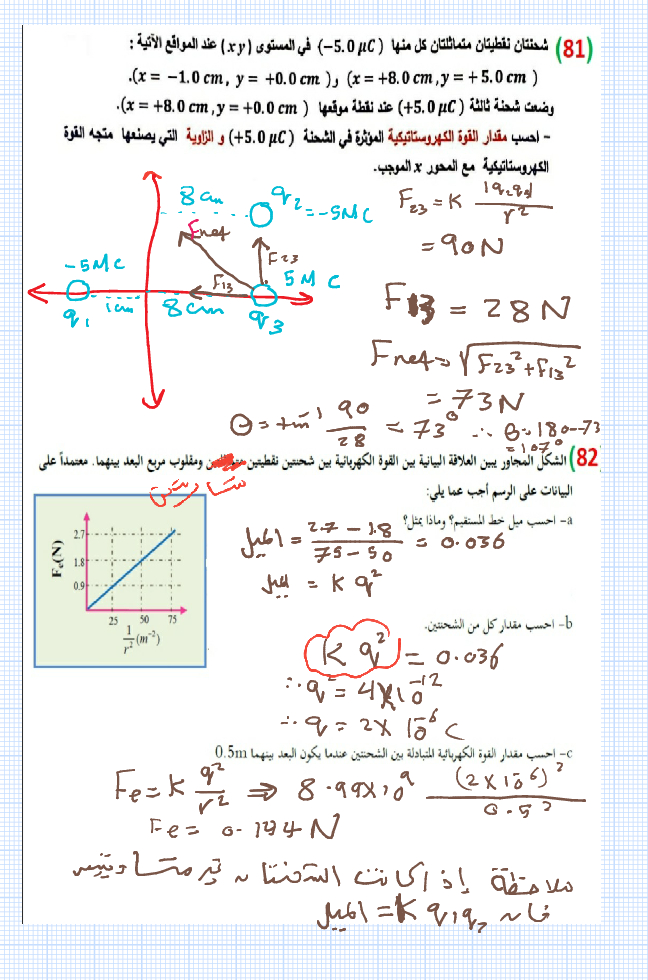 (81) شحنتان نقطيتان متماثلتان كل منها (−5.0 μC) في المستوى (xy) عند المواقع الآتية :
(x = −1.0 cm, y = +0.0 cm) و (x = +8.0 cm, y = + 5.0 cm)
وضعت شحنة ثالثة (+5.0 μC) عند نقطة موقعها (x = +8.0 cm, y = +0.0 cm).
- احسب مقدار القوة الكهروستاتيكية المؤثرة في الشحنة (+5.0 μC) و الزاوية التي يصنعها متجه القوة
الكهروستاتيكية مع المحور x الموجب.
8 cm
q2 = -5 M C
Fnet
F23
-5 M C
F13
5 M C
q1
1cm
8cm
q3
F23 = K |q2q3| / r²
= 90 N
F13 = 28 N
Fnet = √F23² + F13²
= 73 N
θ = tan⁻¹ 90/28 = 73° ∴ θ = 180-73
= 107°
(82) الشكل المجاور يبين العلاقة البيانية بين القوة الكهربائية بين شحنتين نقطيتين ومقلوب مربع البعد بينهما. معتمداً على
متساويتين
البيانات على الرسم أجب عما يلي:
a- احسب ميل خط المستقيم؟ وماذا يمثل؟
الميل = 2.7 - 1.8 / 75 - 50 = 0.036
الميل = K q²
Fe(N)
2.7
1.8
0.9
25 50 75
1/r² (m⁻²)
b- احسب مقدار كل من الشحنتين.
K q² = 0.036
∴ q² = 4X10⁻¹²
∴ q = 2X10⁻⁶ C
c- احسب مقدار القوة الكهربائية المتبادلة بين الشحنتين عندما يكون البعد بينهما 0.5m
Fe = K q²/r² ⇒ 8.99X10⁹ (2X10⁻⁶)² / 0.5²
Fe = 0.144 N
ملاحظة إذا كانت الشحنتان غير متساويتين
فان الميل = K q1q2